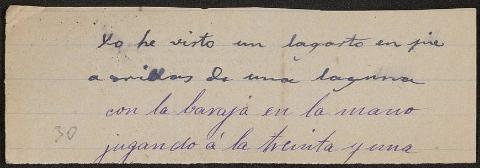 Yo he visto un lagarto en pie
a orillas de una laguna
con la baraja en la mano
30
jugando á la treinta y una